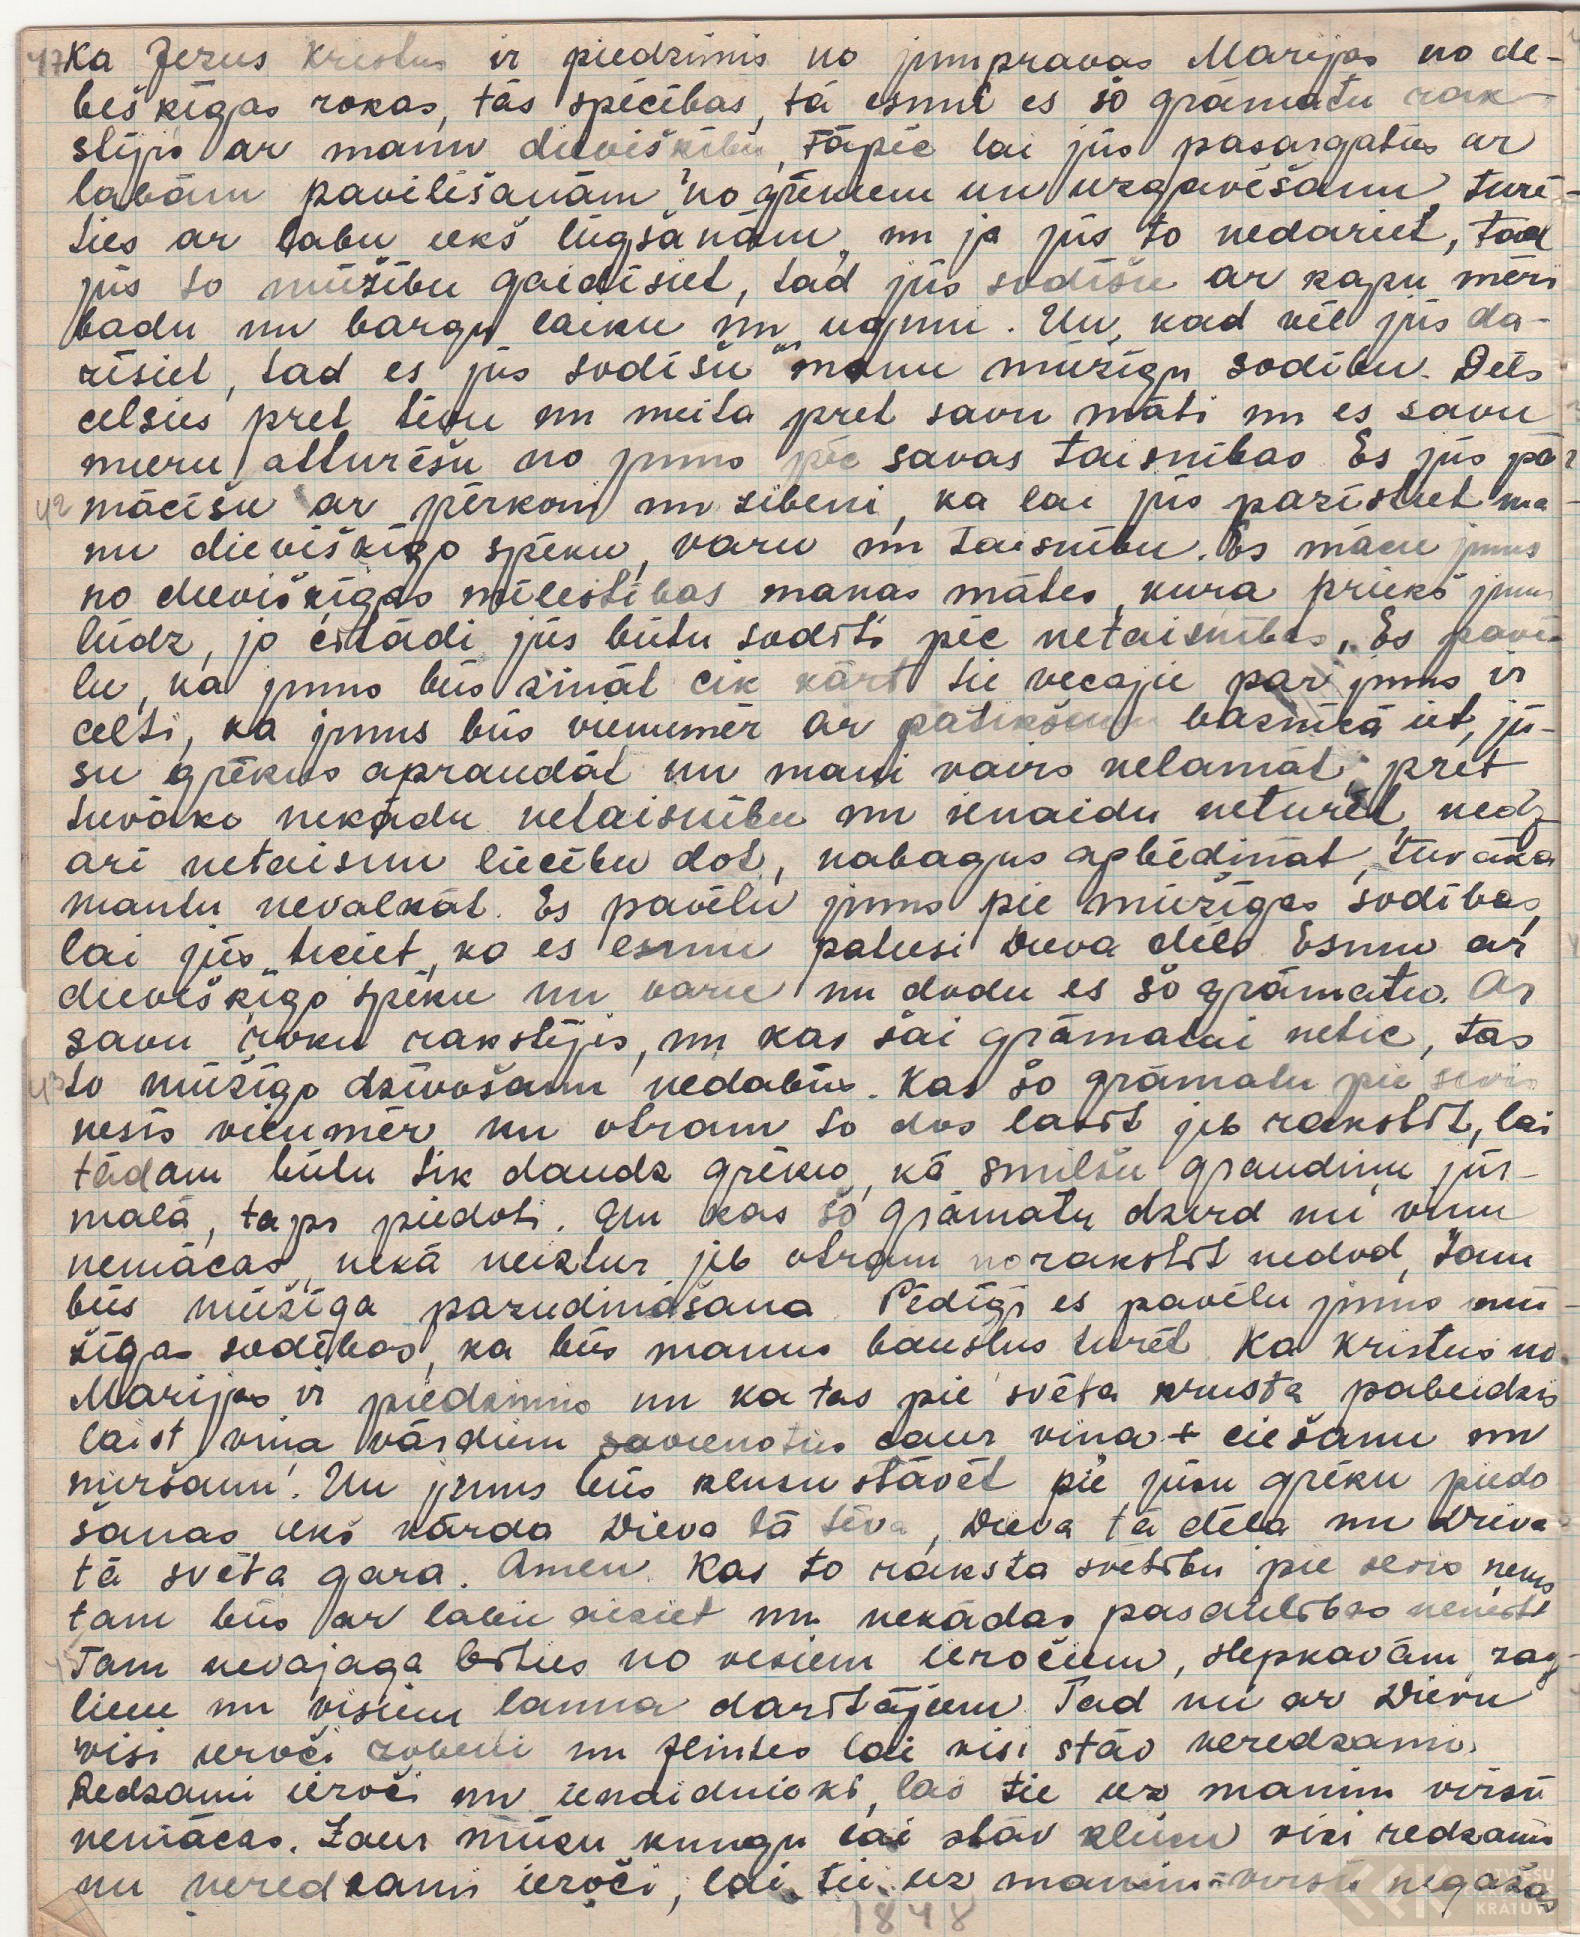 47 Ka Jezus Kristus ir piedzimis no jumpravas Marijas no de-
bešķīgas rokas, tās spēcības, tā esmu es šo grāmatu rak-
stījis ar manu dievišķību, tāpēc lai jūs pasargatūs ar
labām pavēlēšanām no grēkiem un uzgavēšanu, turē-
ties ar labu iekš lūgšanām, un ja jūs to nedariet, tad
jūs to mūžību gaidīsiet, tad jūs sodīšu ar karu mēri
badu un bargu laiku un uguni. Un, kad vēl jūs da-
rīsiet, tad es jūs sodīšu ar manu mūžīgu sodību. Dēls
celsies pret tēvu un meita pret savu māti un es savu
mieru atturēšu no jums pēc savas taisnības Es jūs pā-
42 mācīšu ar pērkoni un zibeni, ka lai jūs pazīstiet ma
nu dievišķīgo spēku, varu un taisnību. Es mācu jums
no dievišķīgas mīlestības manas mātes, kura priekš jums
lūdz, jo citādi jūs būtu sodīti pēc netaisnības. Es pavē-
lu, ka jums būs zināt cik kārt tie vecajie par jums ir
celti, ka jums būs vienumēr ar patikšanu baznīcā iet, jū-
su grēkus apraudāt un mani vairs nelamāt, pret
tuvāko nekādu netaisnību un ienaidu neturēt, nedz
arī netaisnu liecību dot, nabagus apbēdināt, tuvāka
mantu nevalkāt. Es pavēlu jums pie mūžīgas sodības,
lai jūs ticiet, ka es esmu patiesi Dieva dēls Esmu ar
dievišķīgo spēku un varu un dodu es šo grāmatu. Ar
savu roku rakstījis, un kas šai grāmatai netic, tas
43 to mūžīgo dzīvošanu nedabūs. Kas šo grāmatu pie sevis
nesīs vienumēr un otram to dos lasīt jeb rakstīt, lai
tādam būtu tik daudz grēku, kā smilšu graudiņu jūr-
malā, taps piedoti. Un kas šo grāmatu dzird un viņu
nemācas, nekā neiztur jeb otram norakstīt nedod, tam
būs mūžīga pazudināšana Pēdīgi es pavēlu jums mū-
žīgas sodības, ka būs manus baušļus turēt Ka Kristus no
Marijas ir piedzimis un ka tas pie svēta krusta pabeidzis
laist viņa vārdiem savienotus caur viņa + ciešanu un
miršanu! Un jums būs klusu stāvēt pie jūsu grēku piedo
šanas iekš vārda Dieva tā tēva, Dieva tā dēla un Dieva
tā svēta gara. Amen. Kas to raksta svētību pie sevis nesīs
tam būs ar labu aiziet un nekādas pasaulības
Tam nevajaga bītus no visiem ieročiem, slepkavām, zag-
liem un visiem launa darītājiem Tad nu ar Dievu
visi ieroči zobeni un flintes lai visi stāv neredzami.
Redzami ieroči un iendidnieki, lai tie uz manim virsū
nemācas. Caur mūsu kungu lai stāv klusu visi redzami
un neredzami ieroči, lai tie uz manim virsū negāžas
1848